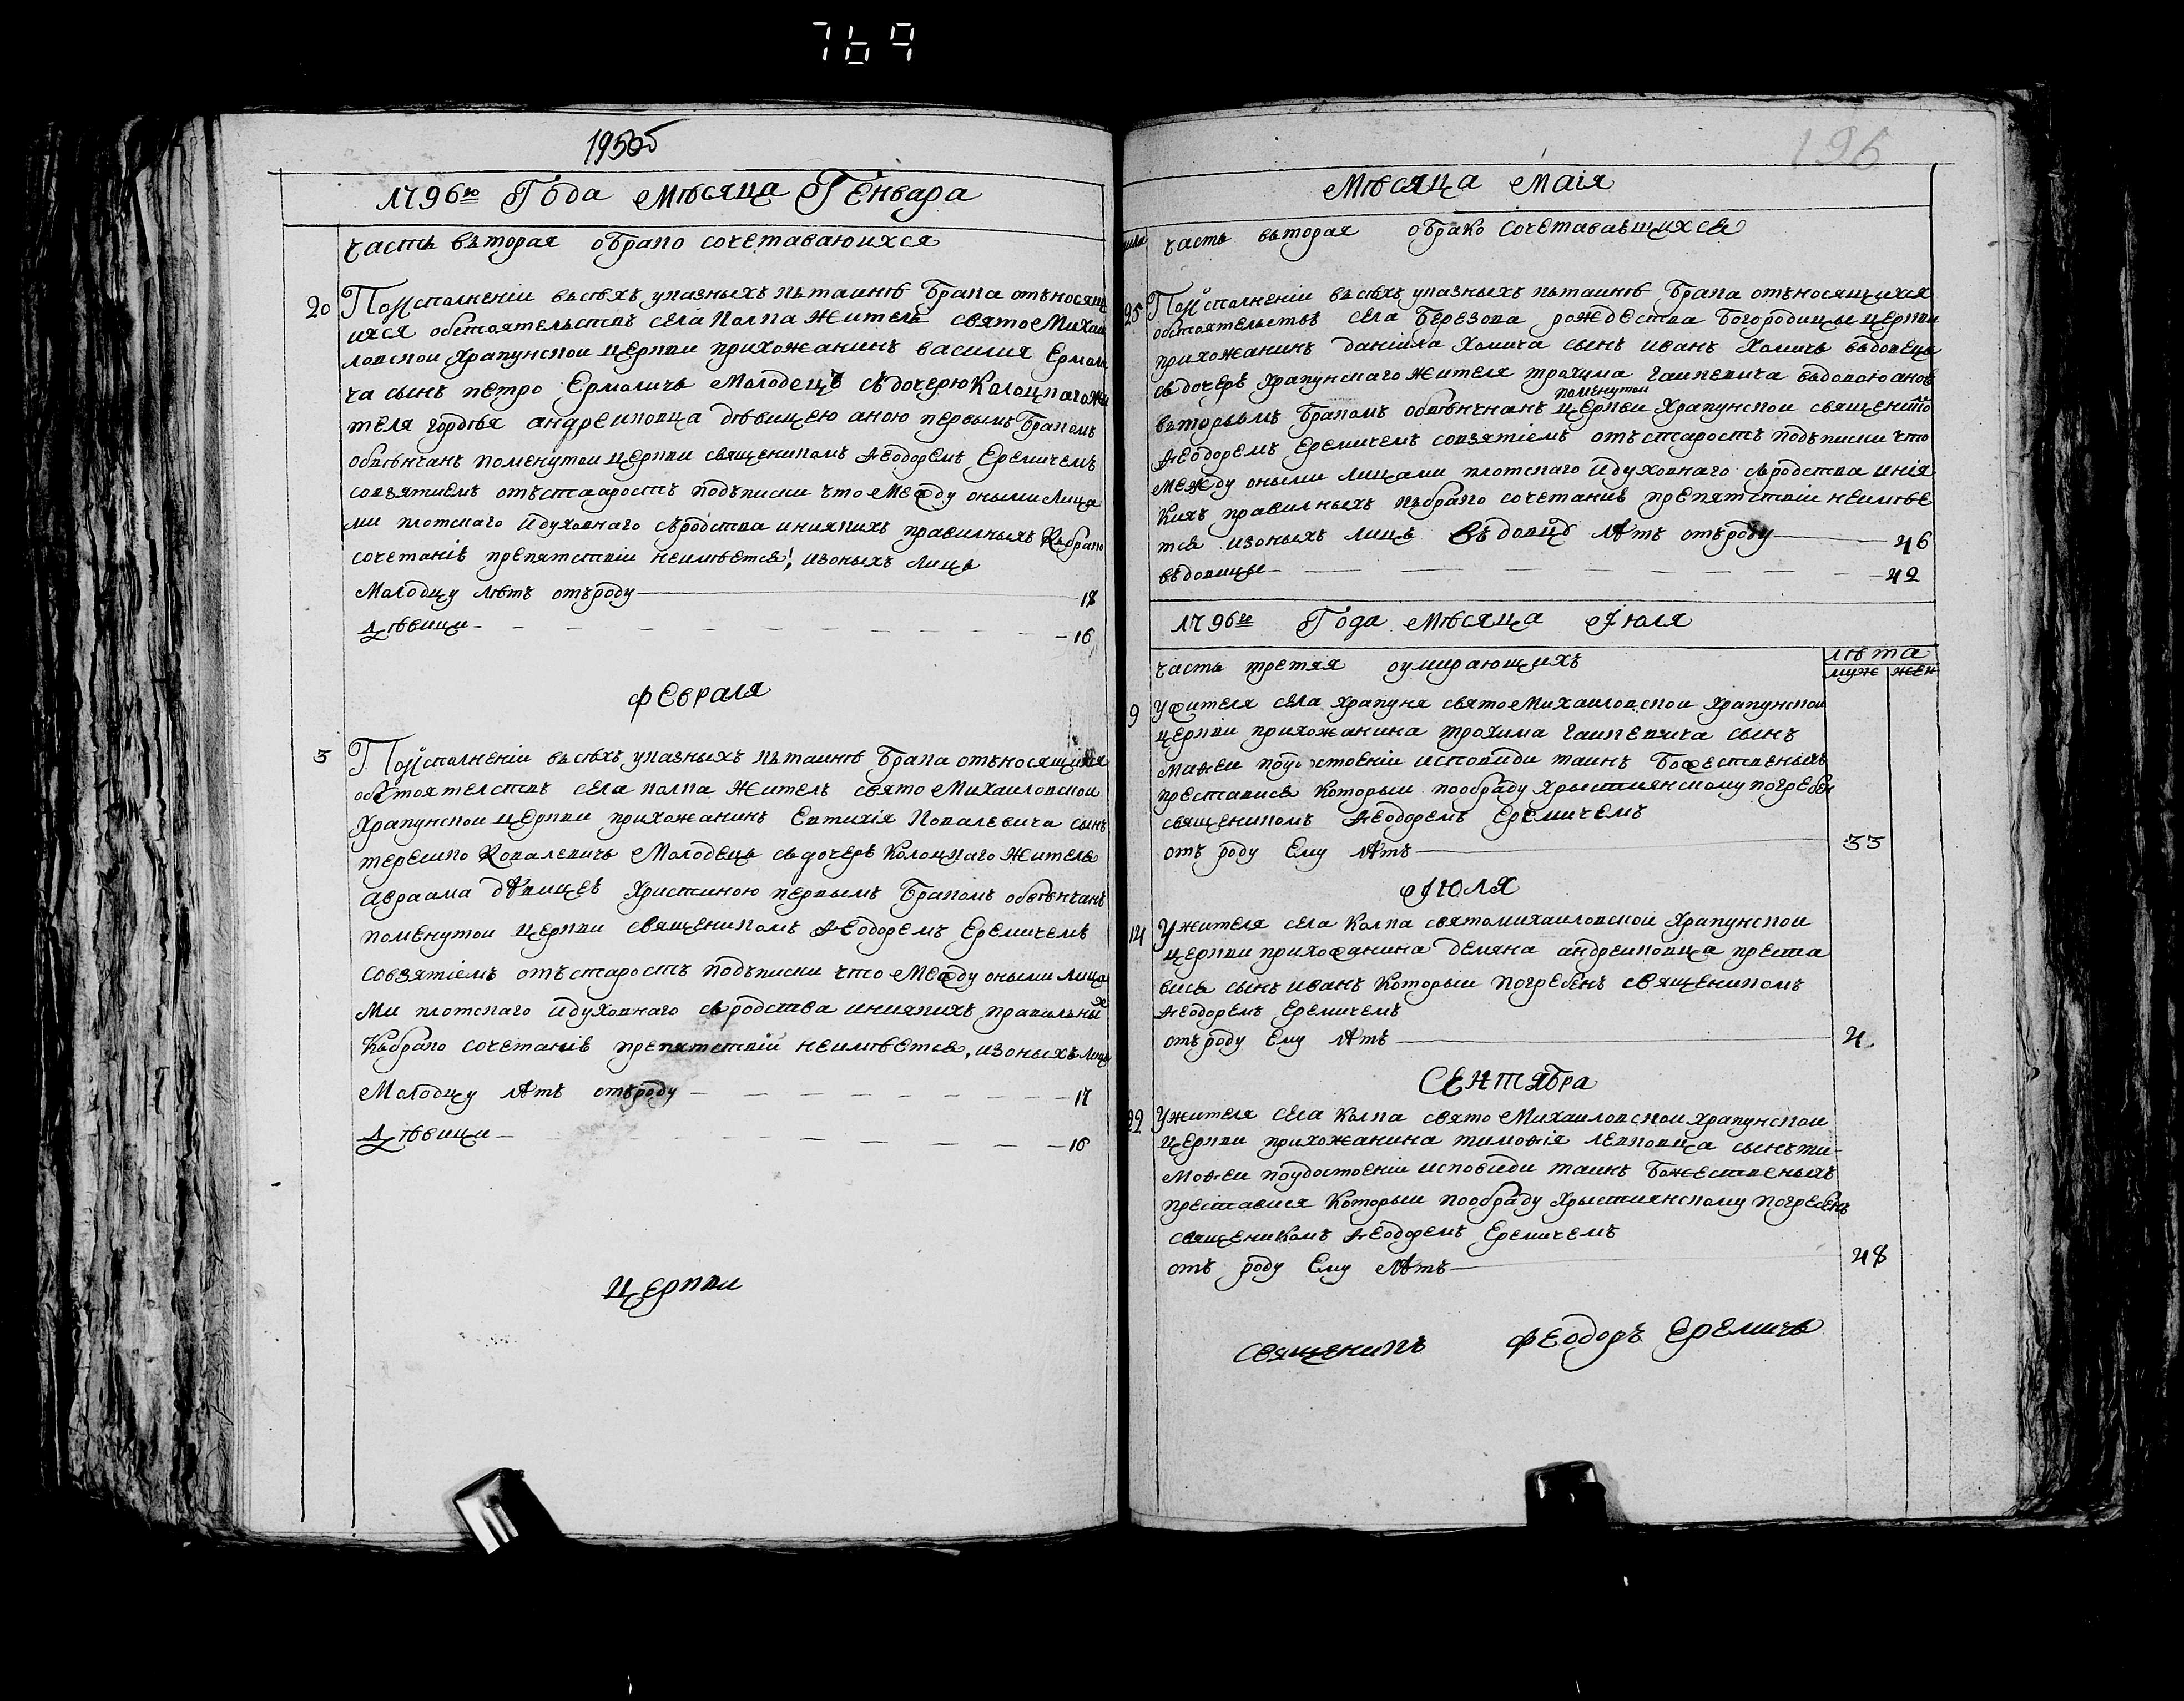 769
195об
1796го Года Мѣсяца Генъвара
часть въторая обрако сочетаваюихся
20 Поисполненіи въсѣхъ указныхъ къ таинѣ брака отъносящ
ихся обстоятельствъ села Колпа житель свято Михаи
ловской Храпунской церкви прихожанинъ василия Ермоли
ча сынъ петро Ермоличъ молодецъ съдочерю Колоцкаго жи
теля гордѣя андреиковца дѣвицею аною первымъ бракомъ
обвѣнчанъ поменутои церкви священикомъ Ѳеодоремъ Еремичемъ
совзятиемъ отъ стааростъ подъписки что между оными лица
ми плотскаго идуховнаго сьродства иниякихъ правилныхъ Къбрако
сочетанію препятствіи неимѣется, изоныхъ лицъ
Молодцу лѣтъ отъроду 18
Дѣвици 16
Февраля
3 Поисполненіи въсѣхъ указныхъ къ таинѣ брака отъносящихся
обстоятелствъ села колпа житель свято Михаиловской
Храпунской церкви прихожанинъ Евтихія Ковалевича сынъ
терешко Ковалевичъ молодецъ съдочеръ Колоцкаго жителя
авраама дѣвицею христиною первымъ бракомъ обвѣнчанъ
поменутои церкви священикомъ Ѳеодоремъ Еремичемъ
совзятіемъ отъ старостъ подъписки что между оными лица
ми плотскаго идуховнаго сьродства иниякихъ правильныхъ
Къбрако сочетанію препятствіи неимѣется, изоныхъ лицъ
Молодцу лѣтъ отъроду 17
Дѣвици 16
Церкви
196
Мѣсяца Маія
числа часть въторая обрако сочетаваъшихся
25 Поисполненіи въсѣхъ указныхъ къ таинѣ брака отъносящихся
обстоятельствъ села Березова рождества богородицы церкви
прихожанинъ даніила Хомича сынъ иванъ Хомичъ въдовецъ
съдочеръ Храпунскаго жителя трохима гацкевича въдовою аною
поменутои
въторымъ бракомъ обвѣнчанъ церкви Храпунской священико
Ѳеодоремъ Еремичемъ совзятіемъ отъ старостъ подъписки что
между оными лицами плотскаго идуховнаго сьродства инія
кихъ правилныхъ къбрако сочетанію препятствіи неимѣе
тся изоныхъ лицъ въдовцу лѣтъ отъроду 46
въдовицы 42
1796го Года Мѣсяца Іюля
часть третяя оумирающихъ лѣта
муж жен
9 Ужителя села Храпуня свято Михаиловской Храпунской
церкви прихожанина трохима гацкевича сынъ
маѳеи поудостоеніи исповиди таинъ божественыхъ
преставися которыи пообраду Хрыстиянскому погребен
священикомъ Ѳеодоремъ Еремичемъ
отъ роду ему лѣтъ 33
Іюля
14 Ужителя села Колпа святомихаиловской Храпунской
церкви прихожанина демяна андреиковца преста
вися сынъ иванъ которыи погребенъ священикомъ
Ѳеодоремъ Еремичемъ
отъ роду ему лѣтъ 4
Сентября
22 Ужителя села Колпа свято Михаиловской Храпунской
церкви прихожанина тимоѳія левковца сынъ ти-
моѳеи поудостоеніи исповиди таинъ божественыхъ
преставися которыи пообраду Хрыстиянскому погребенъ
священикомъ Ѳеодоремъ Еремичемъ
отъ роду ему лѣтъ 48
священикъ Феодоръ Еремичъ